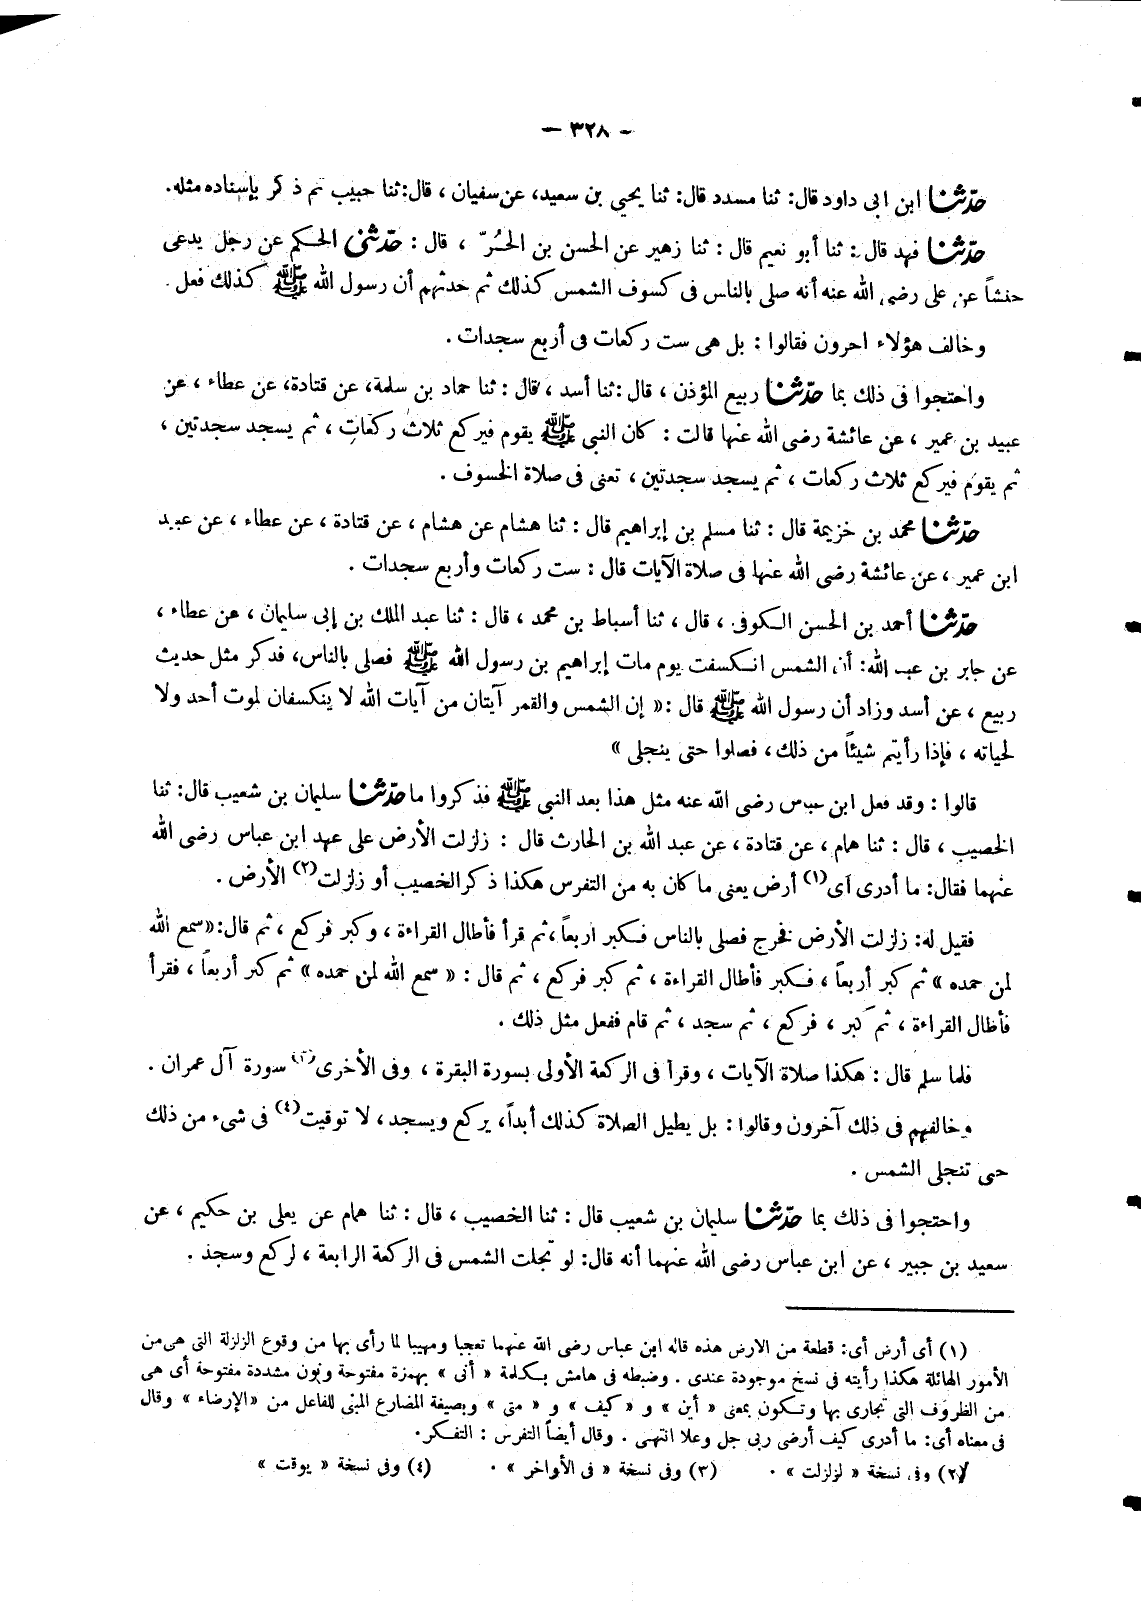 — ٣٢٨ —
حدّثنا ابن ابى داود قال: ثنا مسدد قال: ثنا يحيي بن سعيد، عن سفيان ، قال: ثنا حبيب ثم ذكر بإسناده مثله.
حدّثنا فهد قال : ثنا أبو نعيم قال : ثنا زهير عن الحسن بن الحُرّ ، قال : حدّثنى الحكم عن رجل يدعى
حنشاً عن على رضى الله عنه أنه صلى بالناس فى كسوف الشمس كذلك ثم حدثهم أن رسول الله ﷺ كذلك فعل .
وخالف هؤلاء احرون فقالوا : بل هى ست ركعات فى أربع سجدات .
واحتجوا فى ذلك بما حدّثنا ربيع المؤذن ، قال : ثنا أسد ، قال : ثنا حماد بن سلمة، عن قتادة، عن عطاء ، عن
عبيد بن عمير ، عن عائشة رضى الله عنها قالت : كان النبى ﷺ يقوم فيركع ثلاث ركعات ، ثم يسجد سجدتين ،
ثم يقوم فيركع ثلاث ركعات ، ثم يسجد سجدتين ، تعنى فى صلاة الخسوف .
حدّثنا محمد بن خزيمة قال : ثنا مسلم بن إبراهيم قال : ثنا هشام عن هشام ، عن قتادة ، عن عطاء ، عن عبيد
ابن عمير ، عن عائشة رضى الله عنها فى صلاة الآيات قال : ست ركعات وأربع سجدات .
حدّثنا أحمد بن الحسن الكوفى ، قال ، ثنا أسباط بن محمد ، قال : ثنا عبد الملك بن إبى سليمان ، عن عطاء ،
عن جابر بن عبد الله: أن الشمس انكسفت يوم مات إبراهيم بن رسول الله ﷺ فصلى بالناس، فدكر مثل حديث
ربيع ، عن أسد وزاد أن رسول الله ﷺ قال : « إن الشمس والقمر آيتان من آيات الله لا ينكسفان لموت أحد ولا
لحياته ، فإذا رأيتم شيئاً من ذلك، فصلوا حتى ينجلى »
قالوا : وقد فعل ابن عباس رضى الله عنه مثل هذا بعد النبى ﷺ فذكروا ما حدّثنا سليمان بن شعيب قال: ثنا
الخصيب ، قال : ثنا همام ، عن قتادة ، عن عبد الله بن الحارث قال : زلزلت الأرض على عهد ابن عباس رضى الله
عنهما فقال: ما أدرى أى(١) أرض يعنى ما كان به من التفرس هكذا ذكر الخصيب أو زلزلت(٢) الأرض .
فقيل له: زلزلت الأرض فخرج فصلى بالناس فكبر اربعاً، ثم قرأ فأطال القراءة ، وكبر فركع ، ثم قال: «سمع الله
لمن حمده » ثم كبر أربعاً ، فكبر فأطال القراءة ، ثم كبر فركع ، ثم قال : « سمع الله لمن حمده » ثم كبر أربعاً ، فقرأ
فأطال القراءة ، ثم كبر ، فركع ، ثم سجد ، ثم قام ففعل مثل ذلك .
فلما سلم قال : هكذا صلاة الآيات ، وقرأ فى الركعة الأولى بسورة البقرة ، وفى الأخرى(٣) سورة آل عمران .
وخالفهم فى ذلك آخرون وقالوا : بل يطيل الصلاة كذلك أبداً، يركع ويسجد، لا توقيت(٤) فى شىء من ذلك
حتى تنجلى الشمس .
واحتجوا فى ذلك بما حدّثنا سليمان بن شعيب قال : ثنا الخصيب ، قال : ثنا همام عن يعلى بن حكيم ، عن
سعيد بن جبير ، عن ابن عباس رضى الله عنهما أنه قال: لو تجلت الشمس فى الركعة الرابعة ، لركع وسجد .
(١) أى أرض أى: قطعة من الارض هذه قاله ابن عباس رضى الله عنهما تعجبا ومهيبا لما رأى بها من وقوع الزلزلة التى هى من
الأمور الهائلة هكذا رأيته فى نسخ موجودة عندى . وضبطه فى هامش بكلمة « أنى » بهمزة مفتوحة ونون مشددة مفتوحة أى هى
من الظروف التى تجارى بها وتكون بمعنى « أين » و « كيف » و « متى » وبصيغة المضارع المبنى للفاعل من «الإرضاء » وقال
فى معناه أى: ما أدرى كيف أرضى ربى جل وعلا انتهى . وقال أيضاً التفرس : التفكر.
(٢) وفى نسخة « لزلزلت » . (٣) وفى نسخة « فى الأواخر » . (٤) وفى نسخة « يوقت »